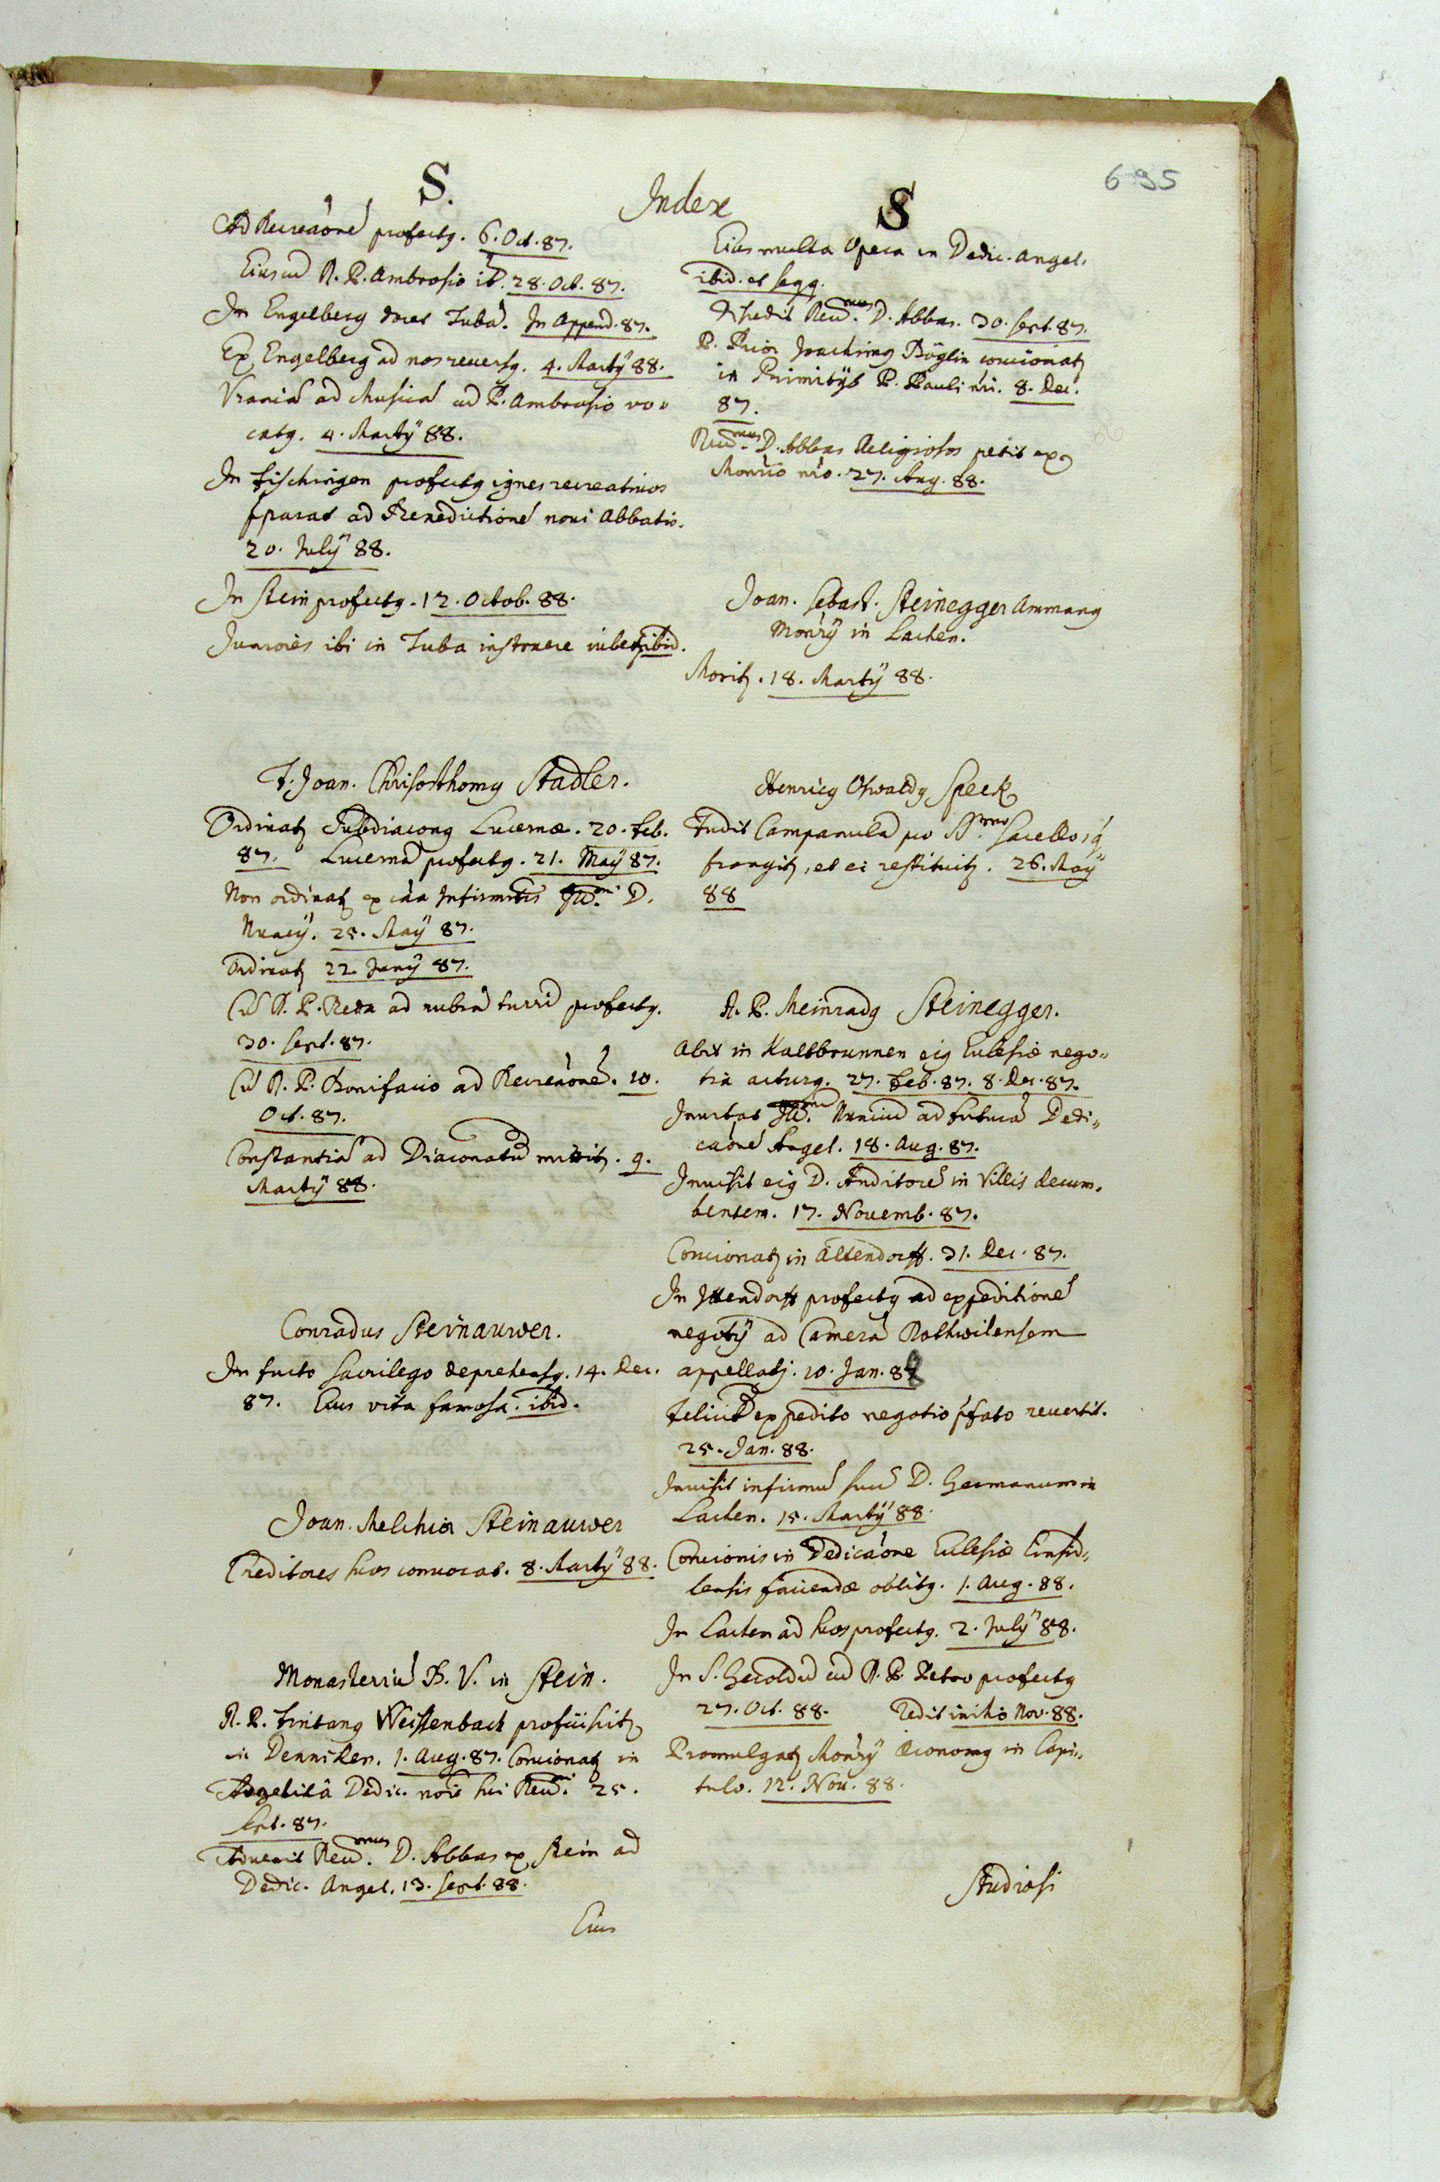 695
S. Index S
Ad Recreaõné profectg. 6. Oct. 87.
Eius cū R. P. Ambrosio ib. 28. Oct. 87.
In Engelberg docet Tubā. In Append. 87.
Ex Engelberg ad nos reversg. 4. Martÿ 88.
Vraniā ad Musicā ad P. Ambrosio vo=
catg. 4. Martÿ 88.
In Fischingen profectg ignes recreativos
pparat ad Benedictioné novi Abbatis.
20. Julÿ 88.
In Stein profectg. 12. Octob. 88.
Juniores ibi in Tuba instruere iubetq ibid.
F. Joan. Chrisosthomg Stadler.
Ordinatq Subdiacong Lucernæ. 20. Feb.
87. Lucernā profectg. 21. Maÿ 87.
Non ordinatq ex cãa Infirmitis Illmi D.
Nuncÿ. 25. Maÿ 87.
Ordinatq 22. Junÿ 87.
Cū R. P. Beda ad rubrā turrī profectg.
30. Sept. 87.
Cū R. P. Bonifacio ad Recreãoné. 10.
Oct. 87.
Constantiā ad Diaconatū mittitq. 9.
Martÿ 88.
Conradus Steinauwer.
In furto sacrilego deprehensg. 14. Dec.
87. Eius vita famosa. ibid.
Joan. Melchior Steinauwer
Creditores suos convocat. 8. Martÿ 88.
Monasteriū B. V. in Stein.
R. P. Fintang Weissenbach proficiscitq
in Denniken. 1. Aug. 87. Concionatq in
Angelicâ Dedic. noīe sui Revmi. 25.
Sept. 87.
Advenit Revmus. D. Abbas ex Stein ad
Dedic. Angel. 13. Sept. 88.
Eius
Eius multa Opera in Dedic. Angel.
ibid. et seqq.
Discedit Revmus. D. Abbas. 30. Sept. 87.
P. Prior Joachimg Böglin concionatq
in Primitÿs P. Pauli nri. 8. Dec.
87.
Revmus. D. Abbas Religiosos petit ex
Monrio nro. 27. Aug. 88.
Joan. Sebast. Steinegger Ammang
Monrÿ in Lachen.
Moritq. 18. Martÿ 88.
Henricg Oswaldg Speck
Fudit Campanulā pro SSmo Sacello, q
frangitq, et ei restituitq. 26. Maÿ
88
R. P. Meinradg Steinegger.
Abit in Kaltbrunnen eig Ecclesiæ nego=
tia acturg. 27. Feb. 87. 8. Dec. 87.
Invitat Illmū Nunciū ad futurā Dedi=
caõné Angel. 18. Aug. 87.
Invisit eig D. Auditoré in Villis decum=
bentem. 17. Novemb. 87.
Concionatq in Altendorff. 31. Dec. 87.
In Ittendorff profectg ad expeditioné
negotÿ ad Camerā Rothwilensem
appellatj. 10. Jan. 88
Felicit expedito negotio pfato revertit.
25. Jan. 88.
Invisit infirmū suū D. Germanum in
Lachen. 15. Martÿ 88.
Concionis in Dedicãone Ecclesiæ Einsid=
lensis faciendæ oblitg. 1. Aug. 88.
In Lachen ad suos profectg. 2. Julÿ 88.
In S. Geroldū cū R. P. Petro profectg
27. Oct. 88. Redit initio Nov. 88.
Promulgatq Monrÿ Œconomg in Capi=
tulo. 12. Nov. 88.
Studiosi